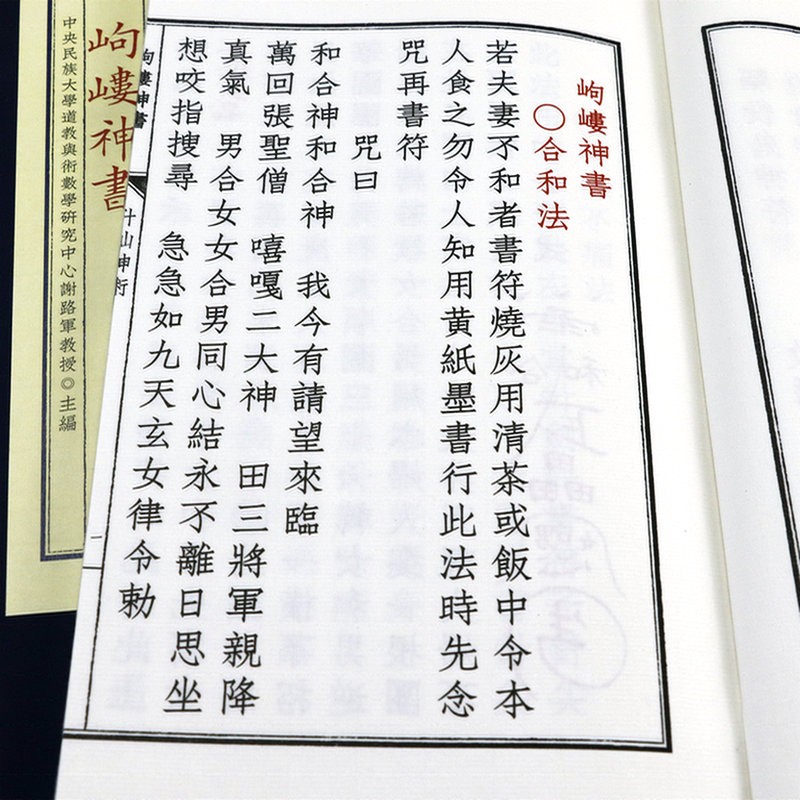 岣嶁神書
〇合和法
若夫妻不和者書符燒灰用清茶或飯中令本
人食之勿令人知用黄紙墨書行此法時先念
咒再書符
咒曰
和合神和合神 我今有請望來臨
萬回張聖僧 嘻嘎二大神 田三將軍親降
真氣 男合女女合男同心結永不離日思坐
想咬指搜尋 急急如九天玄女律令勅
岣嶁神書
二
岣嶁神書
中央民族大學道教與術數學研究中心謝路軍教授◎主編